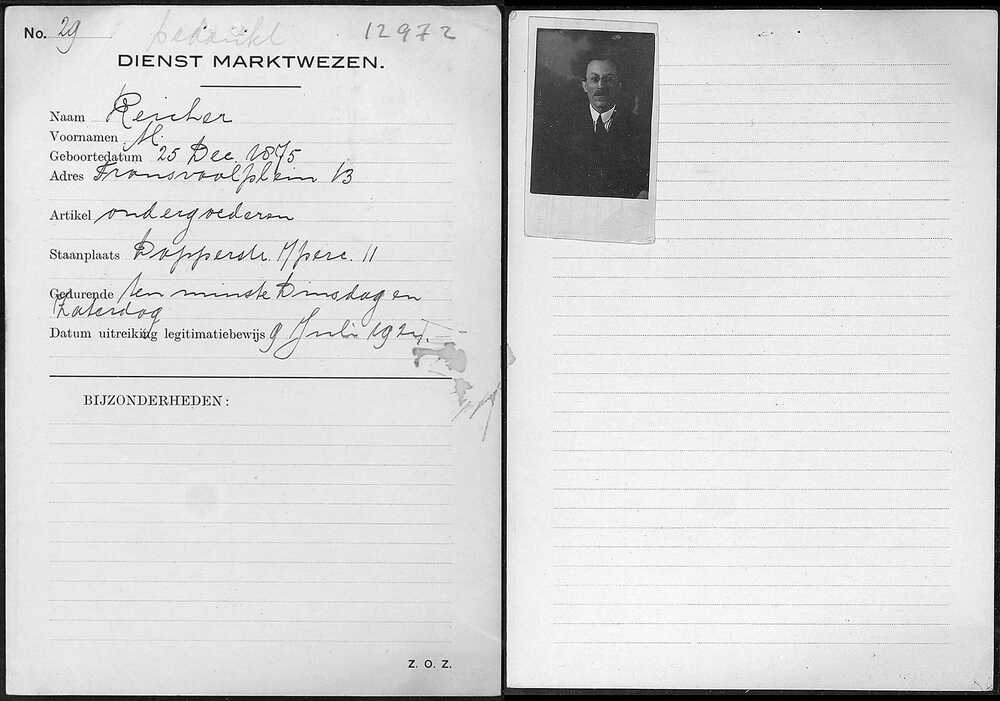 No. 29 bedankt 12972
DIENST MARKTWEZEN.
Naam Reicher
Voornamen M.
Geboortedatum 25 Dec. 1875
Adres Transvaalplein 13
Artikel ondergoederen
Staanplaats Dapperstr. 1/perc. 11
Gedurende ten minste Dinsdag en
Zaterdag
Datum uitreiking legitimatiebewijs 9 Juli 192
BIJZONDERHEDEN:
Z. O. Z.